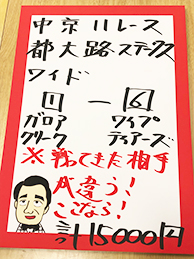 中京11レース
都大路ステークス
ワイド
11-6
ガロア ワイプ
クリーク ティアーズ
※戦ってきた相手
が違う!
ここなら!
115000円